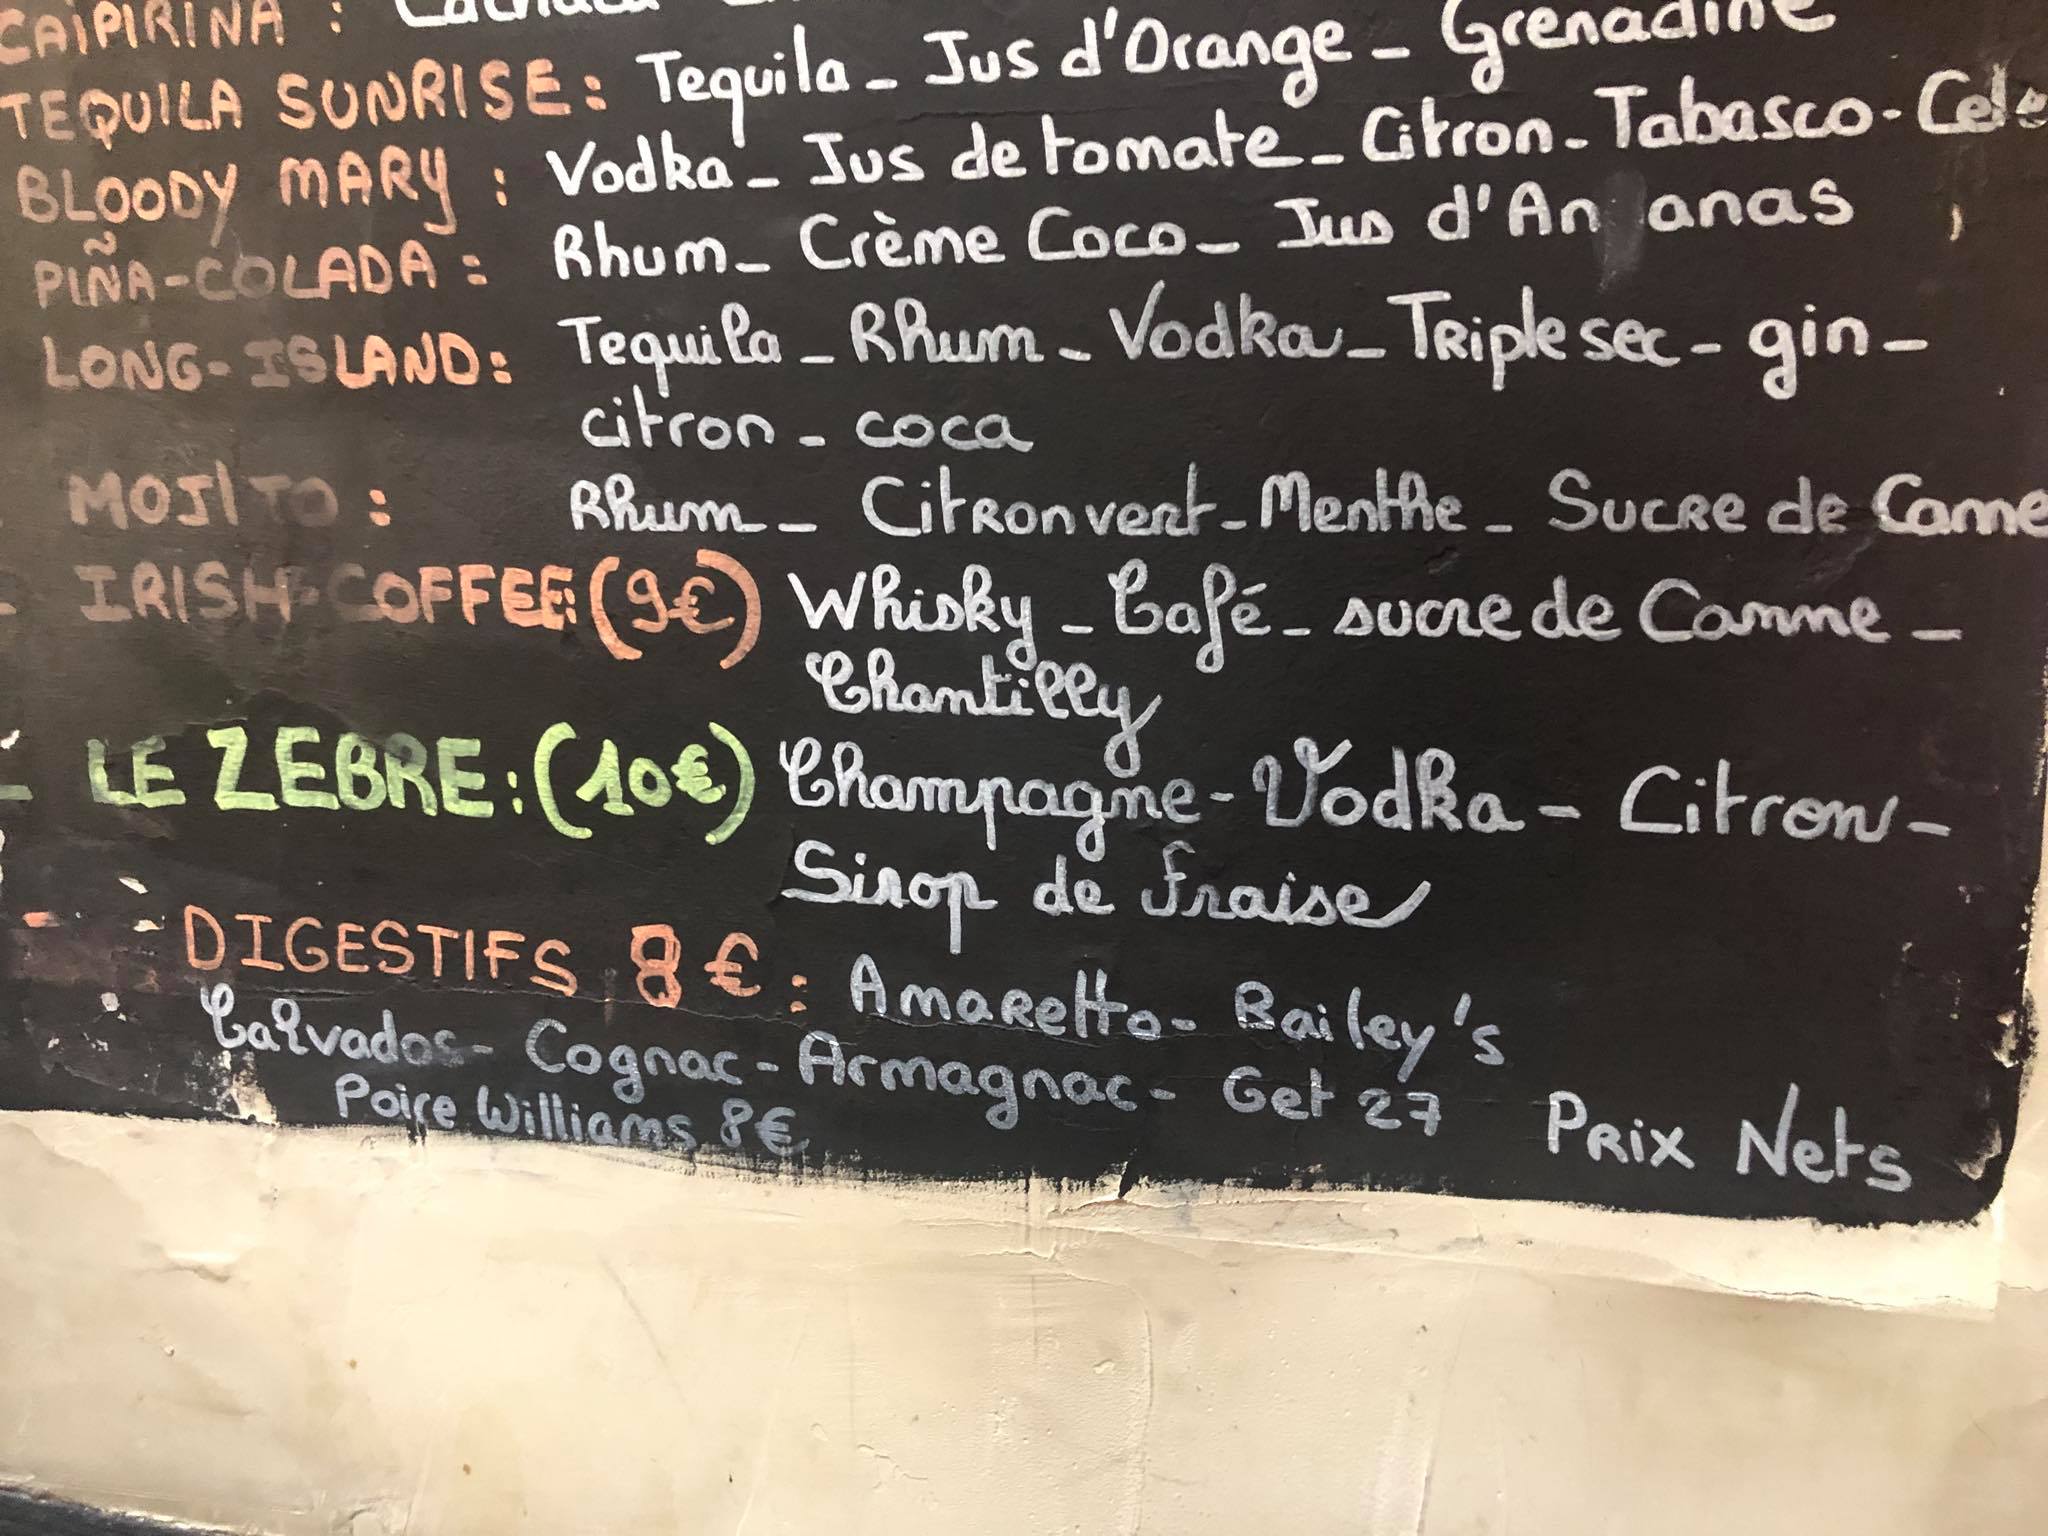 CAÏPIRINA :
TEQUILA SUNRISE: Tequila - Jus d'Orange - Grenadine
BLOODY MARY : Vodka - Jus de tomate - Citron - Tabasco -
PIÑA-COLADA : Rhum - Crème Coco - Jus d'An anas
LONG-ISLAND: Tequila - Rhum - Vodka - Triple sec - gin -
citron - coca
MOJITO : Rhum - Citron vert - Menthe - Sucre de Canne
IRISH-COFFEE: (9€) Whisky - Café - sucre de Canne -
Chantilly
- LE ZEBRE: (10€) Champagne - Vodka - Citron -
Sirop de fraise
DIGESTIFS 8€ : Amaretto - Bailey's
Calvados - Cognac - Armagnac - Get 27
Poire Williams 8€
Prix Nets